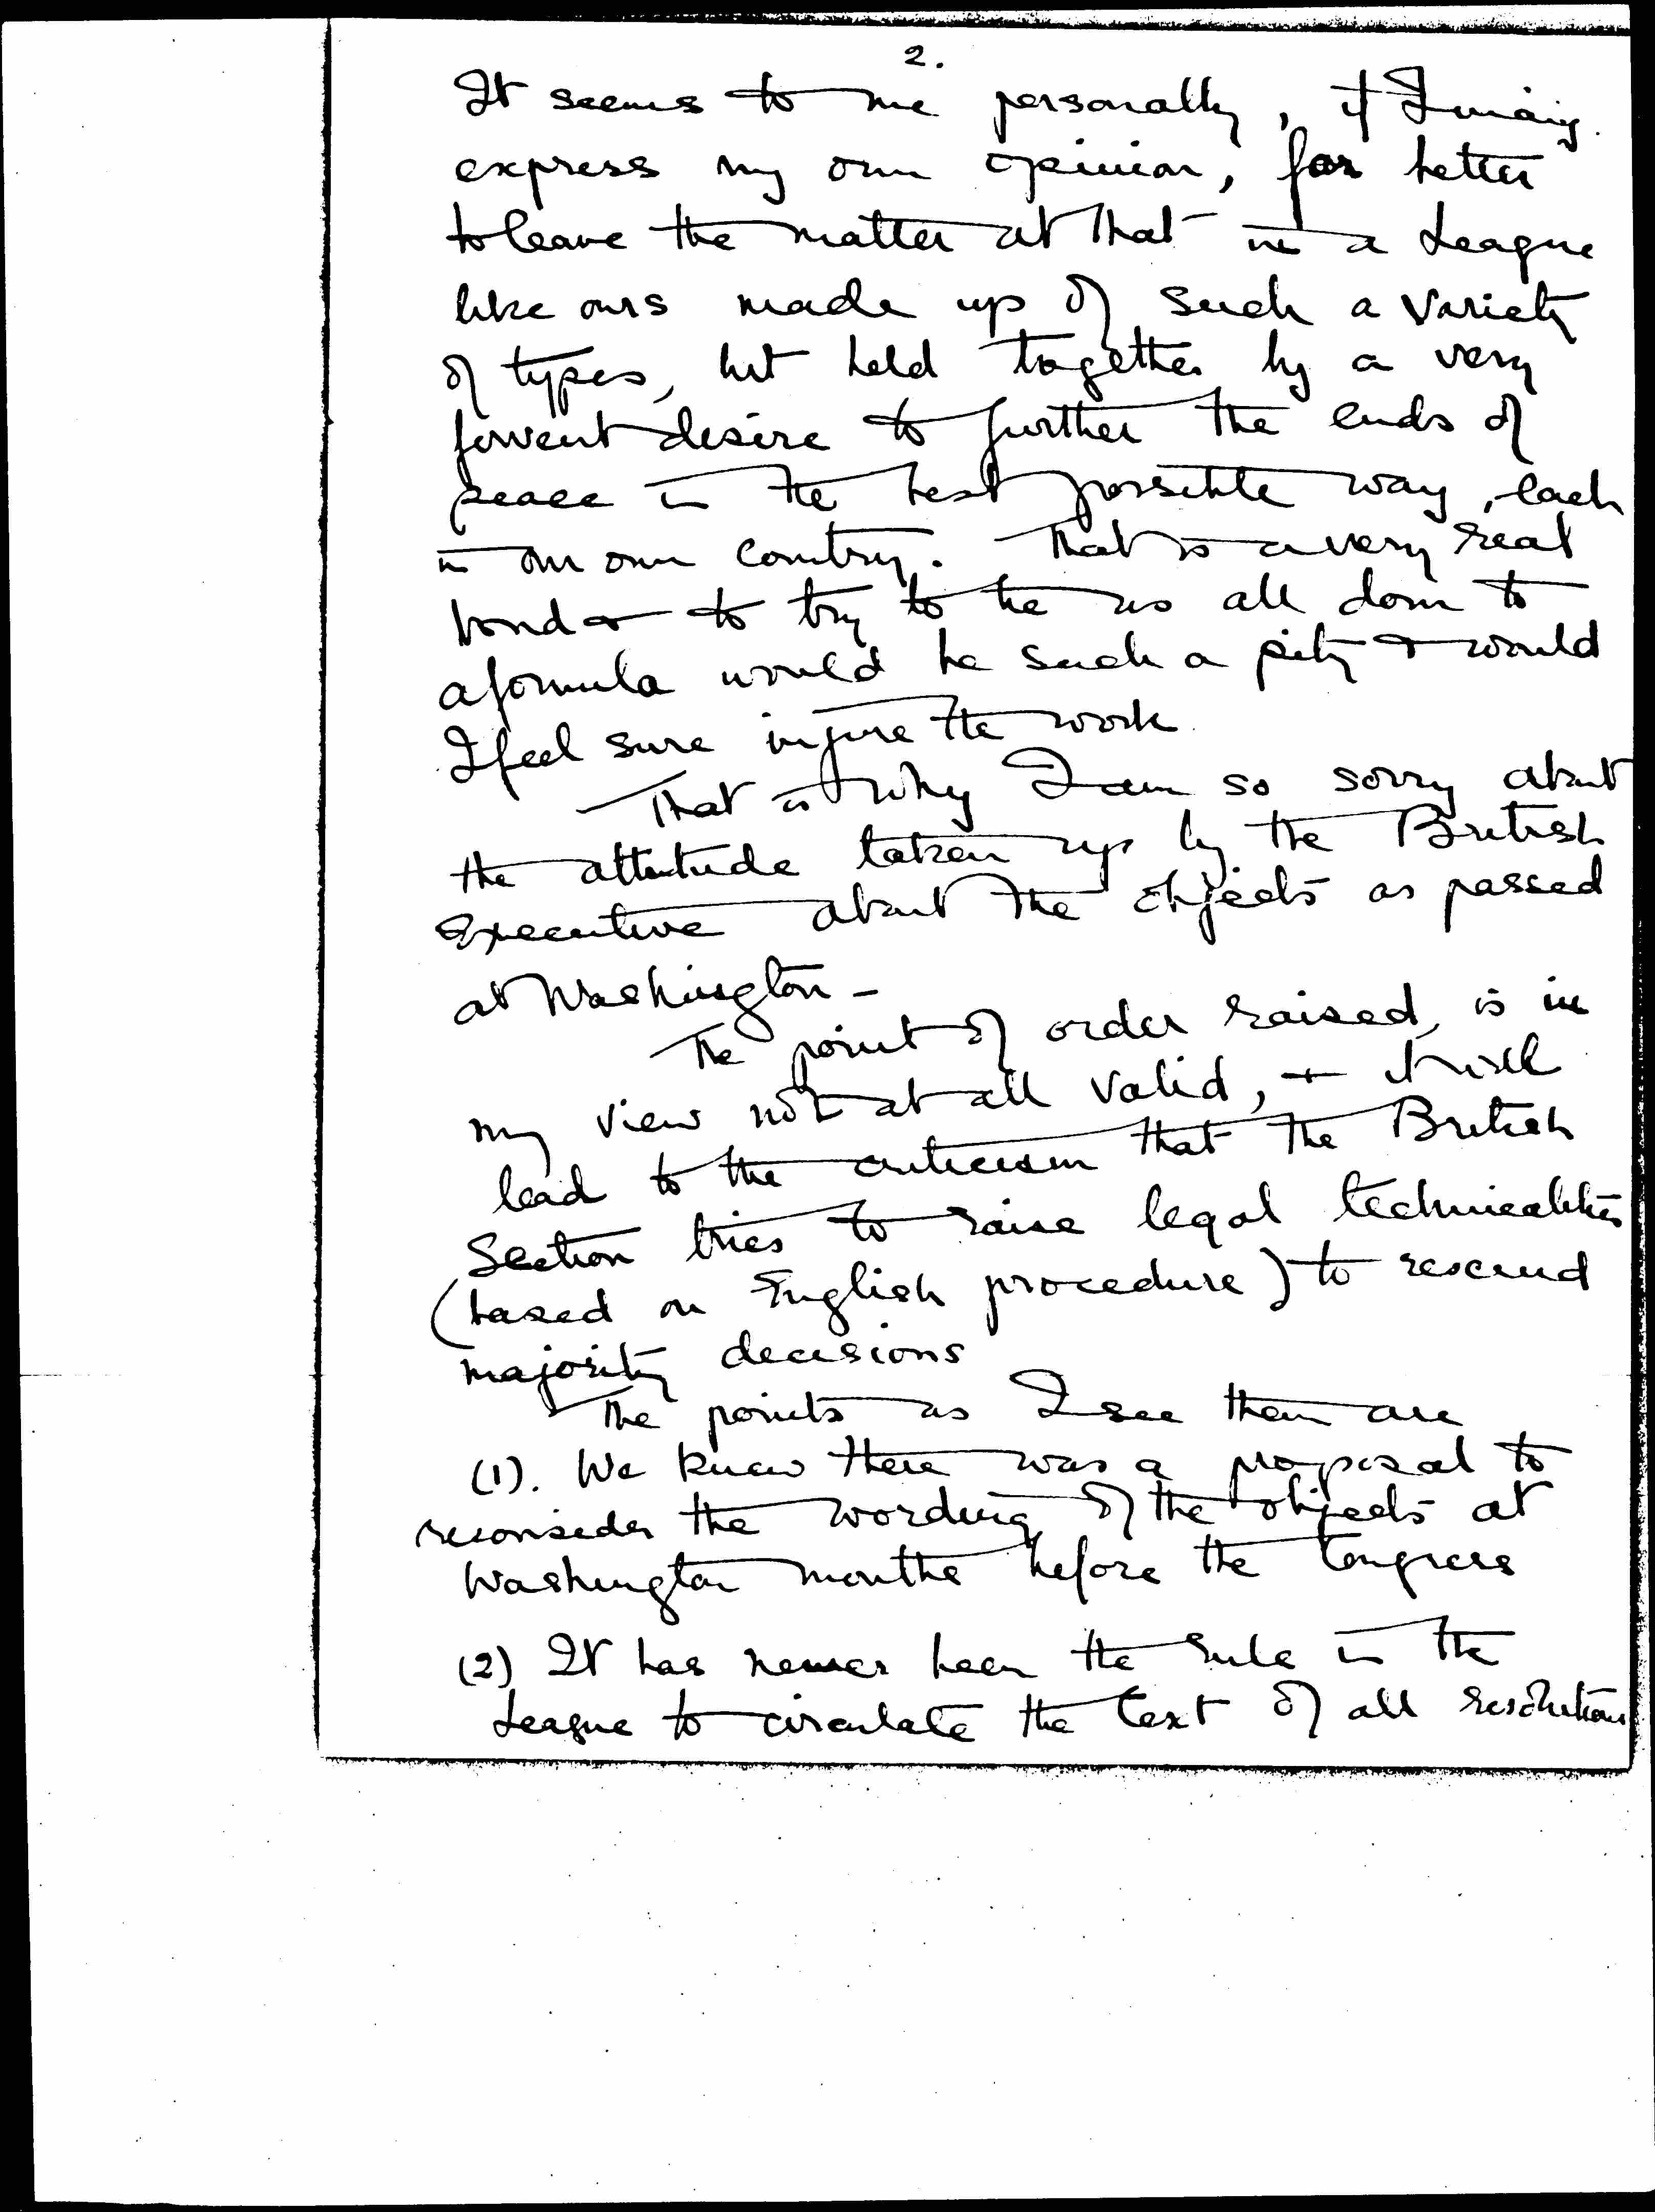 2.
It seems to me personally, if I may
express my own opinion, far better
to leave the matter at that in a League
like ours made up of such a variety
of types, but held together by a very
fervent desire to further the ends of
peace in the best possible way, each
in our own country. That is a very real
bond & to try to tie us all down to
a formula would be such a pity & would
I feel sure injure the work.
That is why I am so sorry about
the attitude taken up by the British
Executive about the objects as passed
at Washington -
The point of order raised, is in
my view not at all valid, & it will
lead to the criticism that the British
Section tries to raise legal technicalities
(based on English procedure) to rescind
majority decisions
The points as I see them are
(1). We knew there was a proposal to
reconsider the wording of the objects at
Washington months before the Congress
(2) It has never been the rule in the
League to circulate the text of all resolutions